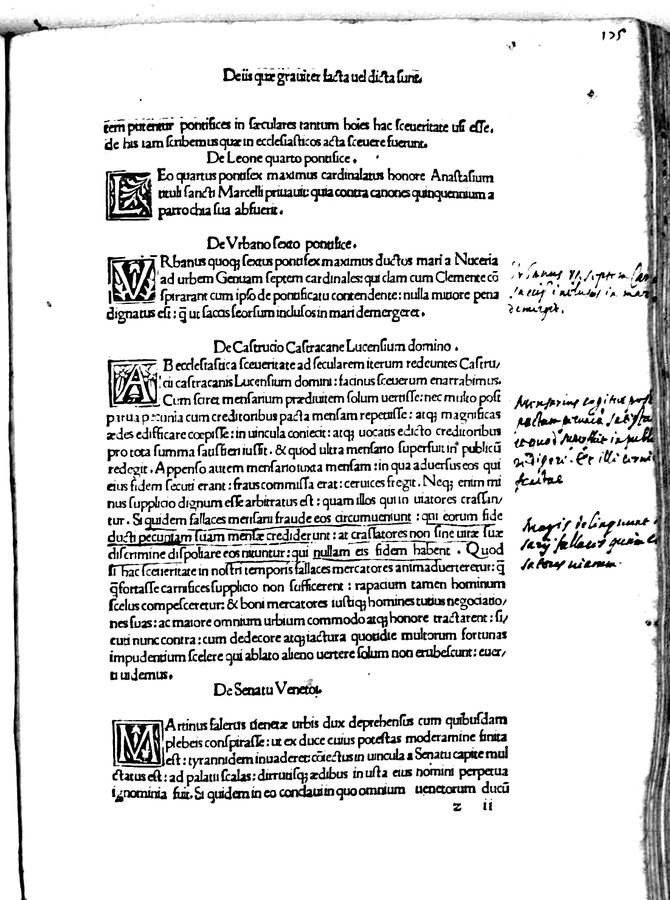 125
De iis quæ graviter facta vel dicta sunt.
tem putentur pontifices in sæculares tantum hoies hac sceueritate usi esse,
de his iam scribemus quæ in ecclesiasticos acta sceuere fuerunt.
De Leone quarto pontifice.
LEo quartus pontifex maximus cardinalatus honore Anastasium
tituli sancti Marcelli priuauit: quia contra canones quinquennium a
parrochia sua abfuerit.
De Vrbano sexto pontifice.
VRbanus quoq; sextus pontifex maximus ductos mari a Nuceria
ad urbem Genuam septem cardinales: qui clam cum Clemente cō
spirarant cum ipso de pontificatu contendente: nulla minore pena
dignatus est: q̄ ut saccis seorsum inclusos in mari demergeret.
Vrbanus VI septem Car
saccis inclusos in mari
demergit.
De Castrucio Castracane Lucensium domino.
AB ecclesiastica sceueritate ad secularem iterum redeuntes Castru/
cii castracanis Lucensium domini: facinus sceuerum enarrabimus.
Cum sciret mensarium præditiuem solum uertisse: nec multo post
parua pecunia cum creditoribus pacta mensam repetiisse: atq; magnificas
ædes edifficare cœpisse: in uincula coniecit: atq; uocatis edicto creditoribus
pro tota summa satisfieri iussit. & quod ultra mensario superfuit in publicū
redegit. Appenso autem mensario iuxta mensam: in qua aduersus eos qui
eius fidem secuti erant: fraus commissa erat: ceruices fregit. Neq; enim mi
nus supplicio dignum esse arbitratus est: quam illos qui in uiatores crassan/
tur. Si quidem fallaces mensarii fraude eos circumueniunt: qui eorum fide
ducti pecuniam suam mensæ crediderunt: at crassatores non sine uitæ suæ
discrimine dispoliare eos nituntur: qui nullam eis fidem habent. Quod
si hac sceueritate in nostri temporis fallaces mercatores animaduerteretur: q̄
q̄ fortasse carnifices supplicio non sufficerent: rapacium tamen hominum
scelus compesceretur: & boni mercatores iustiq; homines tutius negociatio/
nes suas: ac maiore omnium urbium commodo atq; honore tractarent: si/
cuti nunc contra: cum dedecore atq; iactura quotidie multorum fortunas
impudentium scelere qui ablato alieno uertere solum non erubescunt: euer/
ti uidemus.
Mensarius cogitur post
et quod superfuit in publicum
Magis delinquunt
sarii fallaces quam
satores uiarum.
De Senatu Veneto.
MArtinus falerus uenetæ urbis dux deprehensus cum quibusdam
plebeis conspirasse: ut ex duce cuius potestas moderamine finita
est: tyrannidem inuaderet: cōiectus in uincula a Senatu capite mul
ctatus est: ad palatii scalas: dirrutisq; ædibus in usta eius homini perpetua
ignominia fuit. Si quidem in eo conclaui in quo omnium uenetorum ducū
z ii